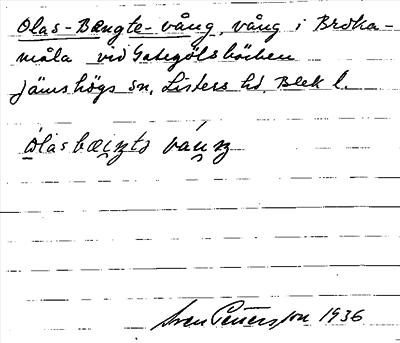 Olas-Bængte-vång, vång i Broka-
måla vid Gategölsbäcken
Jämshögs sn, Listers hd Blek l.
Sven Pettersson 1936